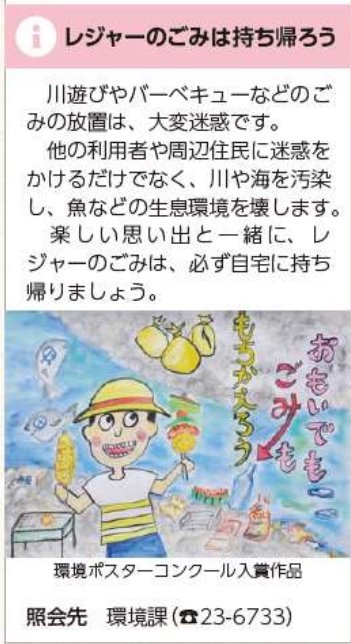 i レジャーのごみは持ち帰ろう
川遊びやバーベキューなどのご
みの放置は、大変迷惑です。
他の利用者や周辺住民に迷惑を
かけるだけでなく、川や海を汚染
し、魚などの生息環境を壊します。
楽しい思い出と一緒に、レ
ジャーのごみは、必ず自宅に持ち
帰りましょう。
おもいでも
ごみも
もちかえろう
環境ポスターコンクール入賞作品
照会先 環境課(☎23-6733)